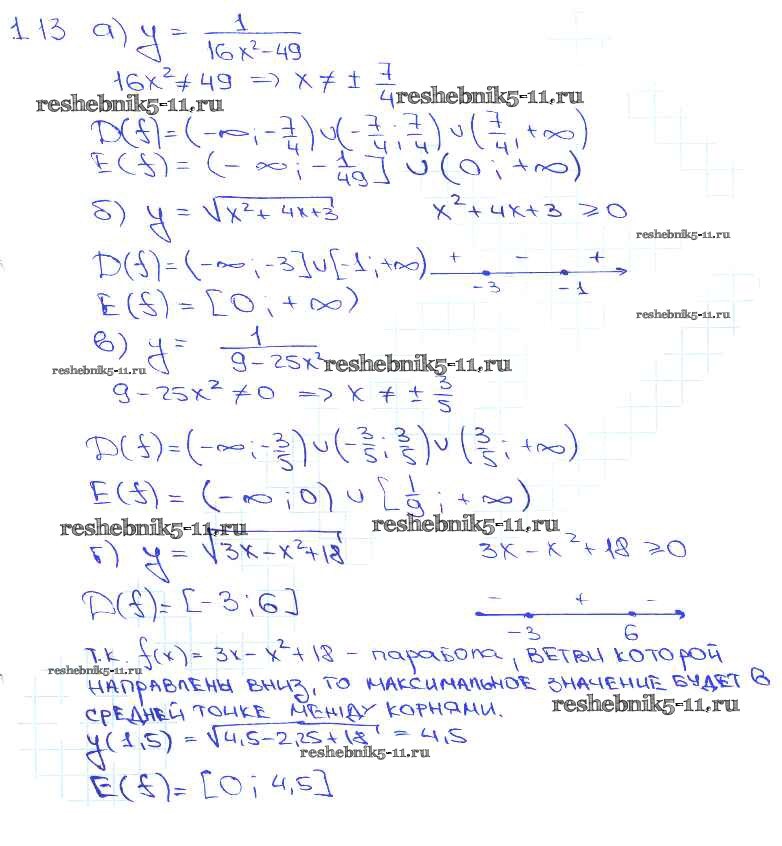 1.13 а) y = 1/(16x²-49)
16x² ≠ 49 => x ≠ ± 7/4
reshebnik5-11.ru reshebnik5-11.ru
D(f) = (-∞; -7/4) ∪ (-7/4; 7/4) ∪ (7/4, +∞)
E(f) = (-∞; -1/49] ∪ (0; +∞)
б) y = √(x² + 4x+3) x² + 4x+3 ≥ 0
reshebnik5-11.ru
D(f) = (-∞; -3] ∪ [-1; +∞) + - +
-3 -1
E(f) = [0; +∞)
reshebnik5-11.ru
в) y = 1/(9-25x²)
reshebnik5-11.ru reshebnik5-11.ru
9-25x² ≠ 0 => x ≠ ± 3/5
D(f) = (-∞; -3/5) ∪ (-3/5; 3/5) ∪ (3/5; +∞)
E(f) = (-∞; 0) ∪ [1/9; +∞)
reshebnik5-11.ru reshebnik5-11.ru
г) y = √(3x-x²+18) 3x-x²+18 ≥ 0
D(f) = [-3; 6] - + -
-3 6
т.к. f(x) = 3x-x²+18 - парабола, ветви которой
reshebnik5-11.ru
направлены вниз, то максимальное значение будет в
средней точке между корнями.
reshebnik5-11.ru
y(1,5) = √(4,5-2,25+18) = 4,5
reshebnik5-11.ru
E(f) = [0; 4,5]